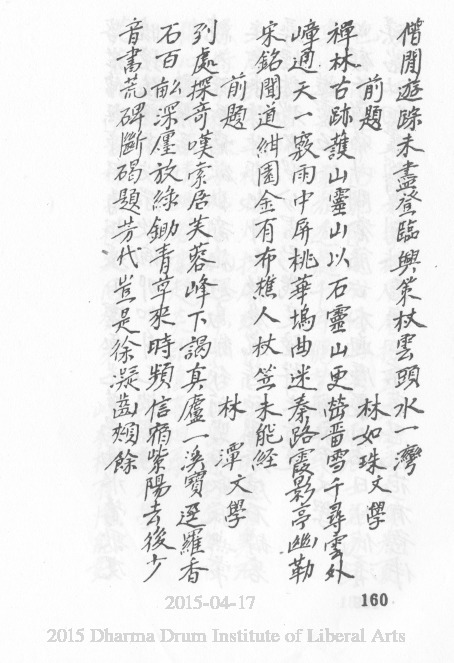 僧閒遊踪未盡登臨興策杖雲頭水一灣
前題 林如珠文學
禪林古跡護山靈山以石靈山更瑩晉雪千尋雲外
嶂通天一竅雨中屏桃華塢曲迷秦路霞影亭幽勒
宋銘聞道紺園金有布樵人杖笠未能經
前題 林潭文學
列處探奇嘆索居芙蓉峰下謁真廬一溪寶筏羅香
石百畝深厓放綠鋤青草來時頻信宿紫陽去後少
音書荒碑斷碣題芳代豈是徐凝齒頰餘
2015-04-17
160
2015 Dharma Drum Institute of Liberal Arts